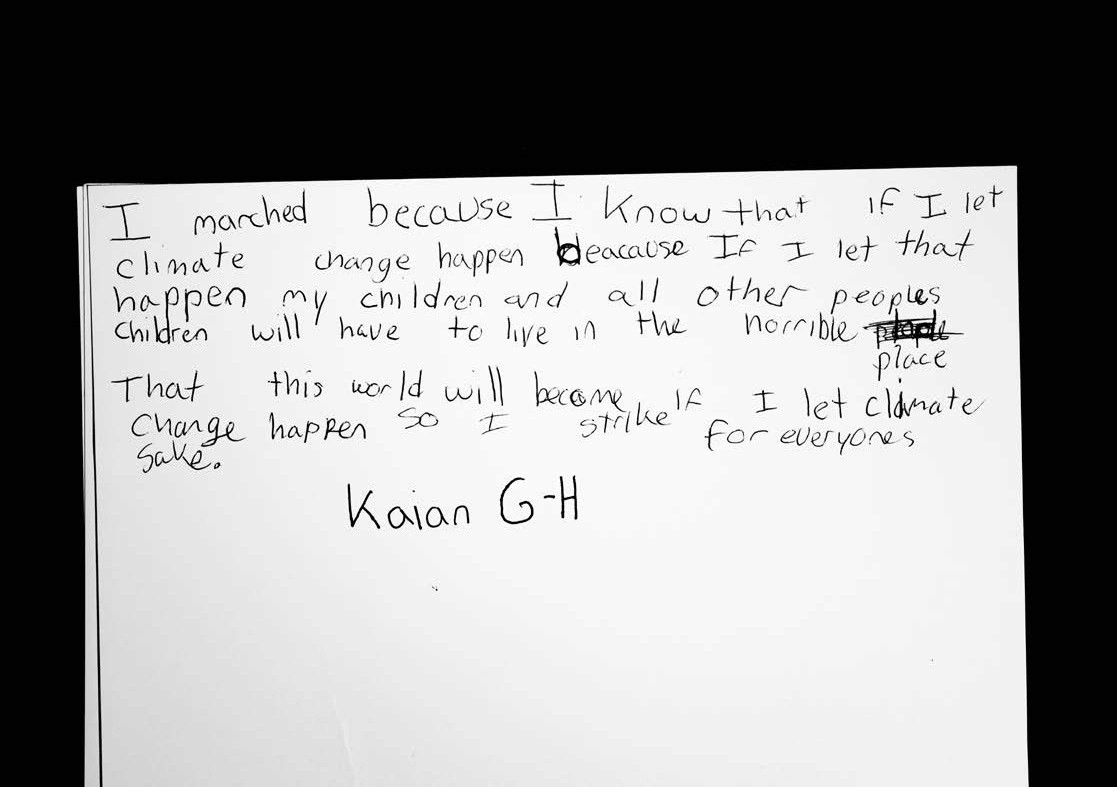 I marched because I know that if I let
climate change happen beacause If I let that
happen my children and all other peoples
children will have to live in the horrible
place
That this world will become if I let climate
change happen so I strike for everyones
sake.
Kaian G-H